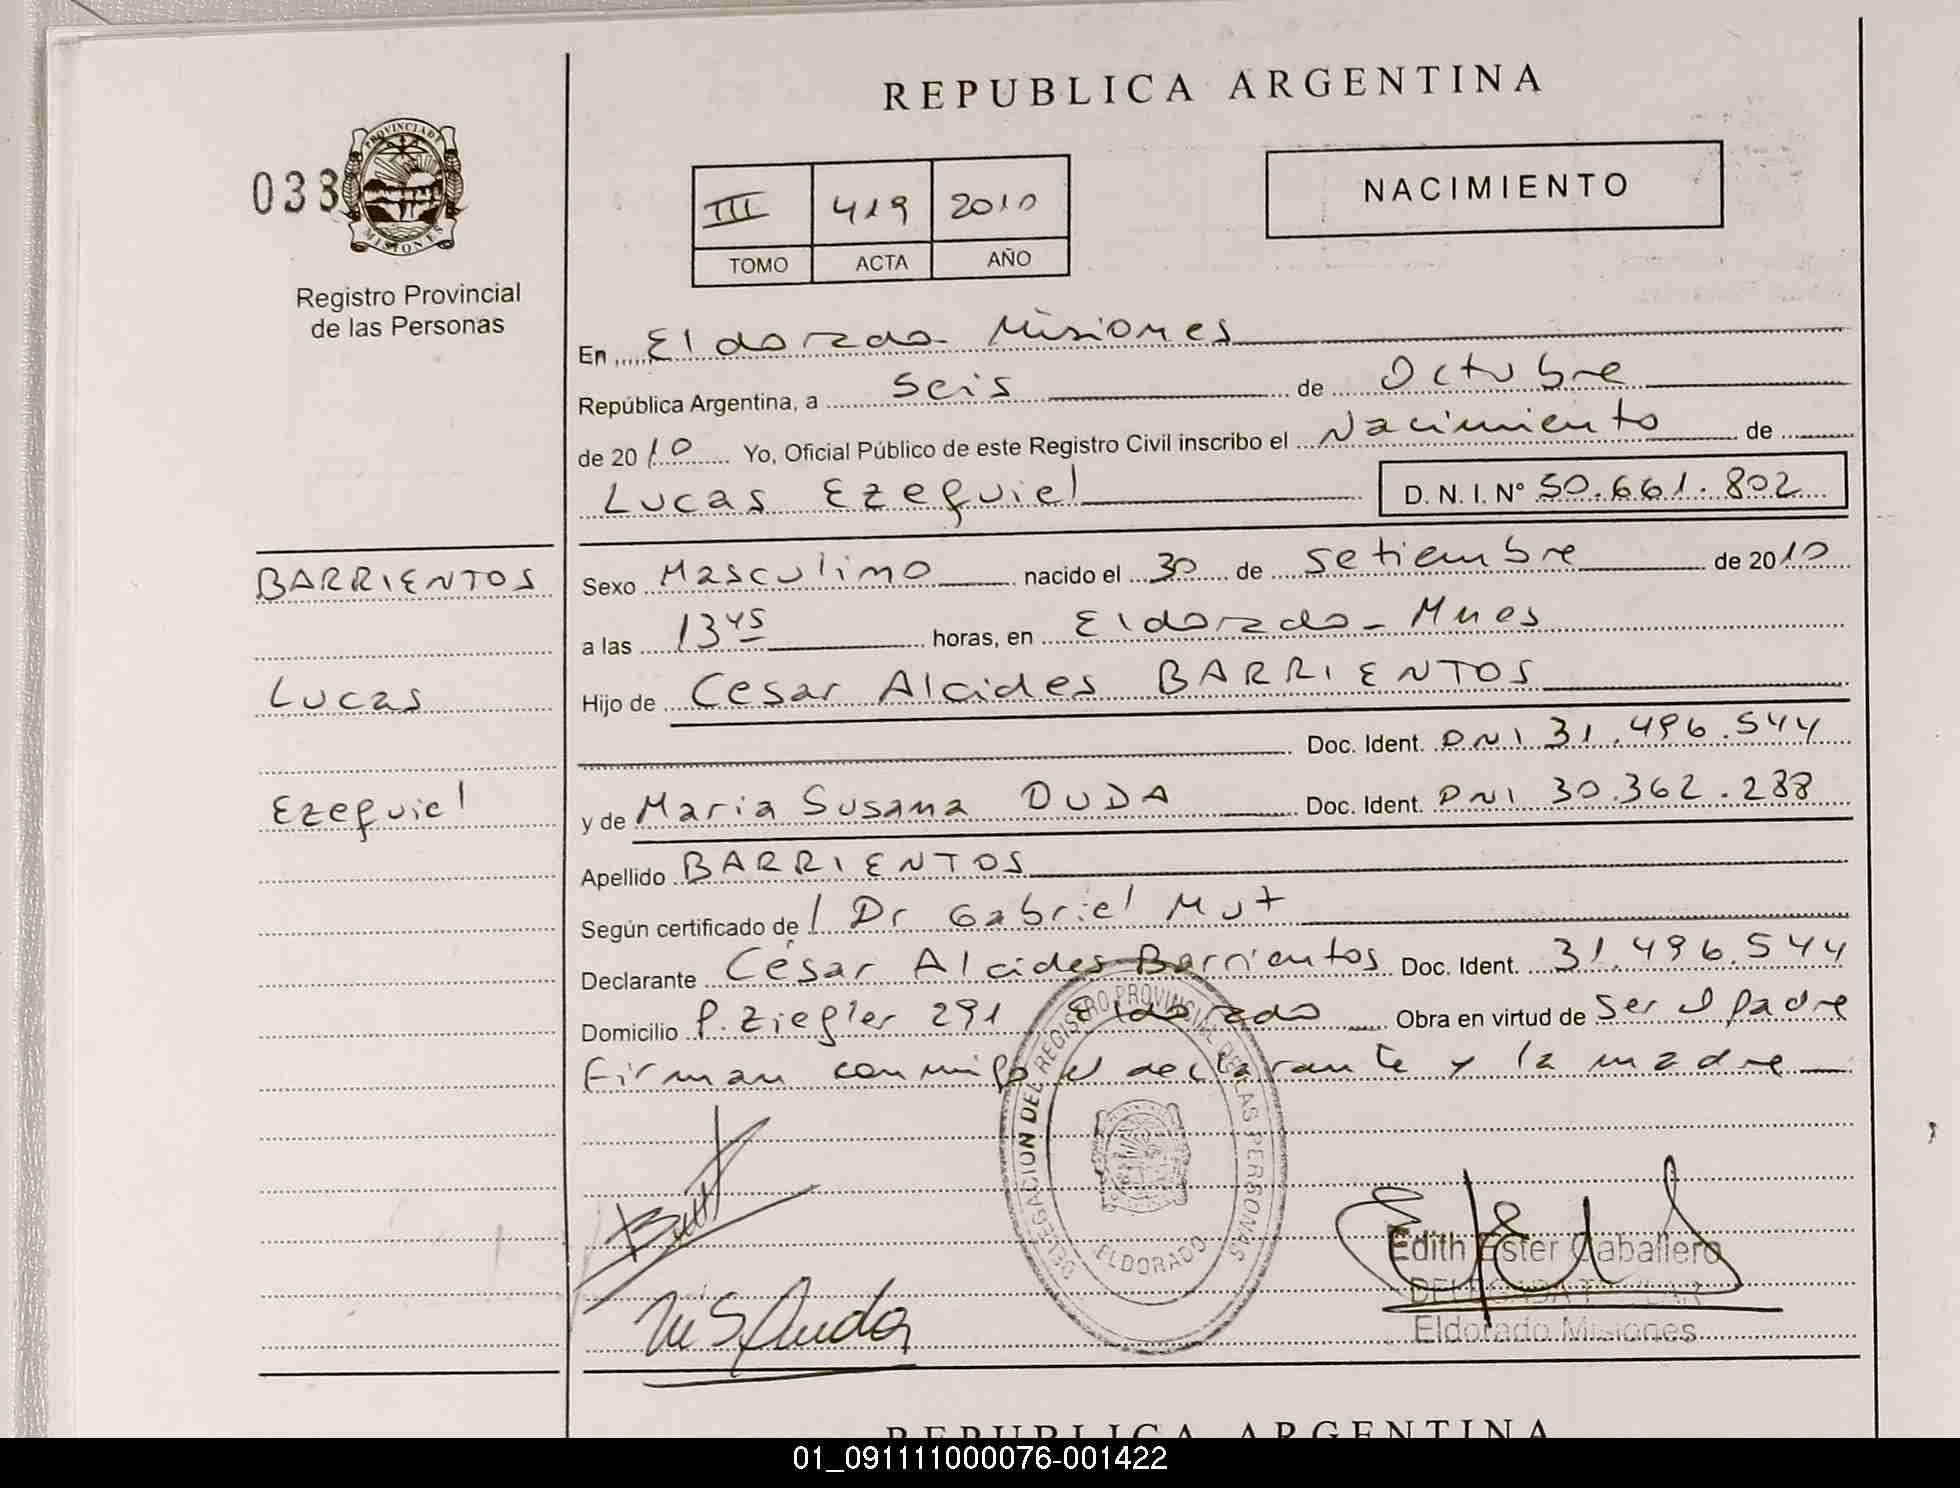 REPUBLICA ARGENTINA
033
PROVINCIA DE
MISIONES
Registro Provincial
de las Personas
III 419 2010
TOMO ACTA AÑO
NACIMIENTO
En Eldorado Misiones
República Argentina, a Seis de Octubre
de 2010 Yo, Oficial Público de este Registro Civil inscribo el Nacimiento de
Lucas Ezequiel D.N.I. Nº 50.661.802
BARRIENTOS
Lucas
Ezequiel
Sexo Masculino nacido el 30 de Setiembre de 2010
a las 13 45 horas, en Eldorado - Mnes
Hijo de Cesar Alcides BARRIENTOS
Doc. Ident. DNI 31.496.544
y de Maria Susana DUDA Doc. Ident. DNI 30.362.288
Apellido BARRIENTOS
Según certificado de l Dr Gabriel Mut
Declarante César Alcides Barrientos Doc. Ident. 31.496.544
Domicilio P. Ziegler 291 Eldorado Obra en virtud de Ser el padre
Firman conmigo el declarante y la madre
DELEGACION DEL REGISTRO PROVINCIAL DE LAS PERSONAS
ELDORADO
M S Duda
Edith Ester Caballero
DELEGADA TITULAR
Eldorado Misiones
REPUBLICA ARGENTINA
01_091111000076-001422